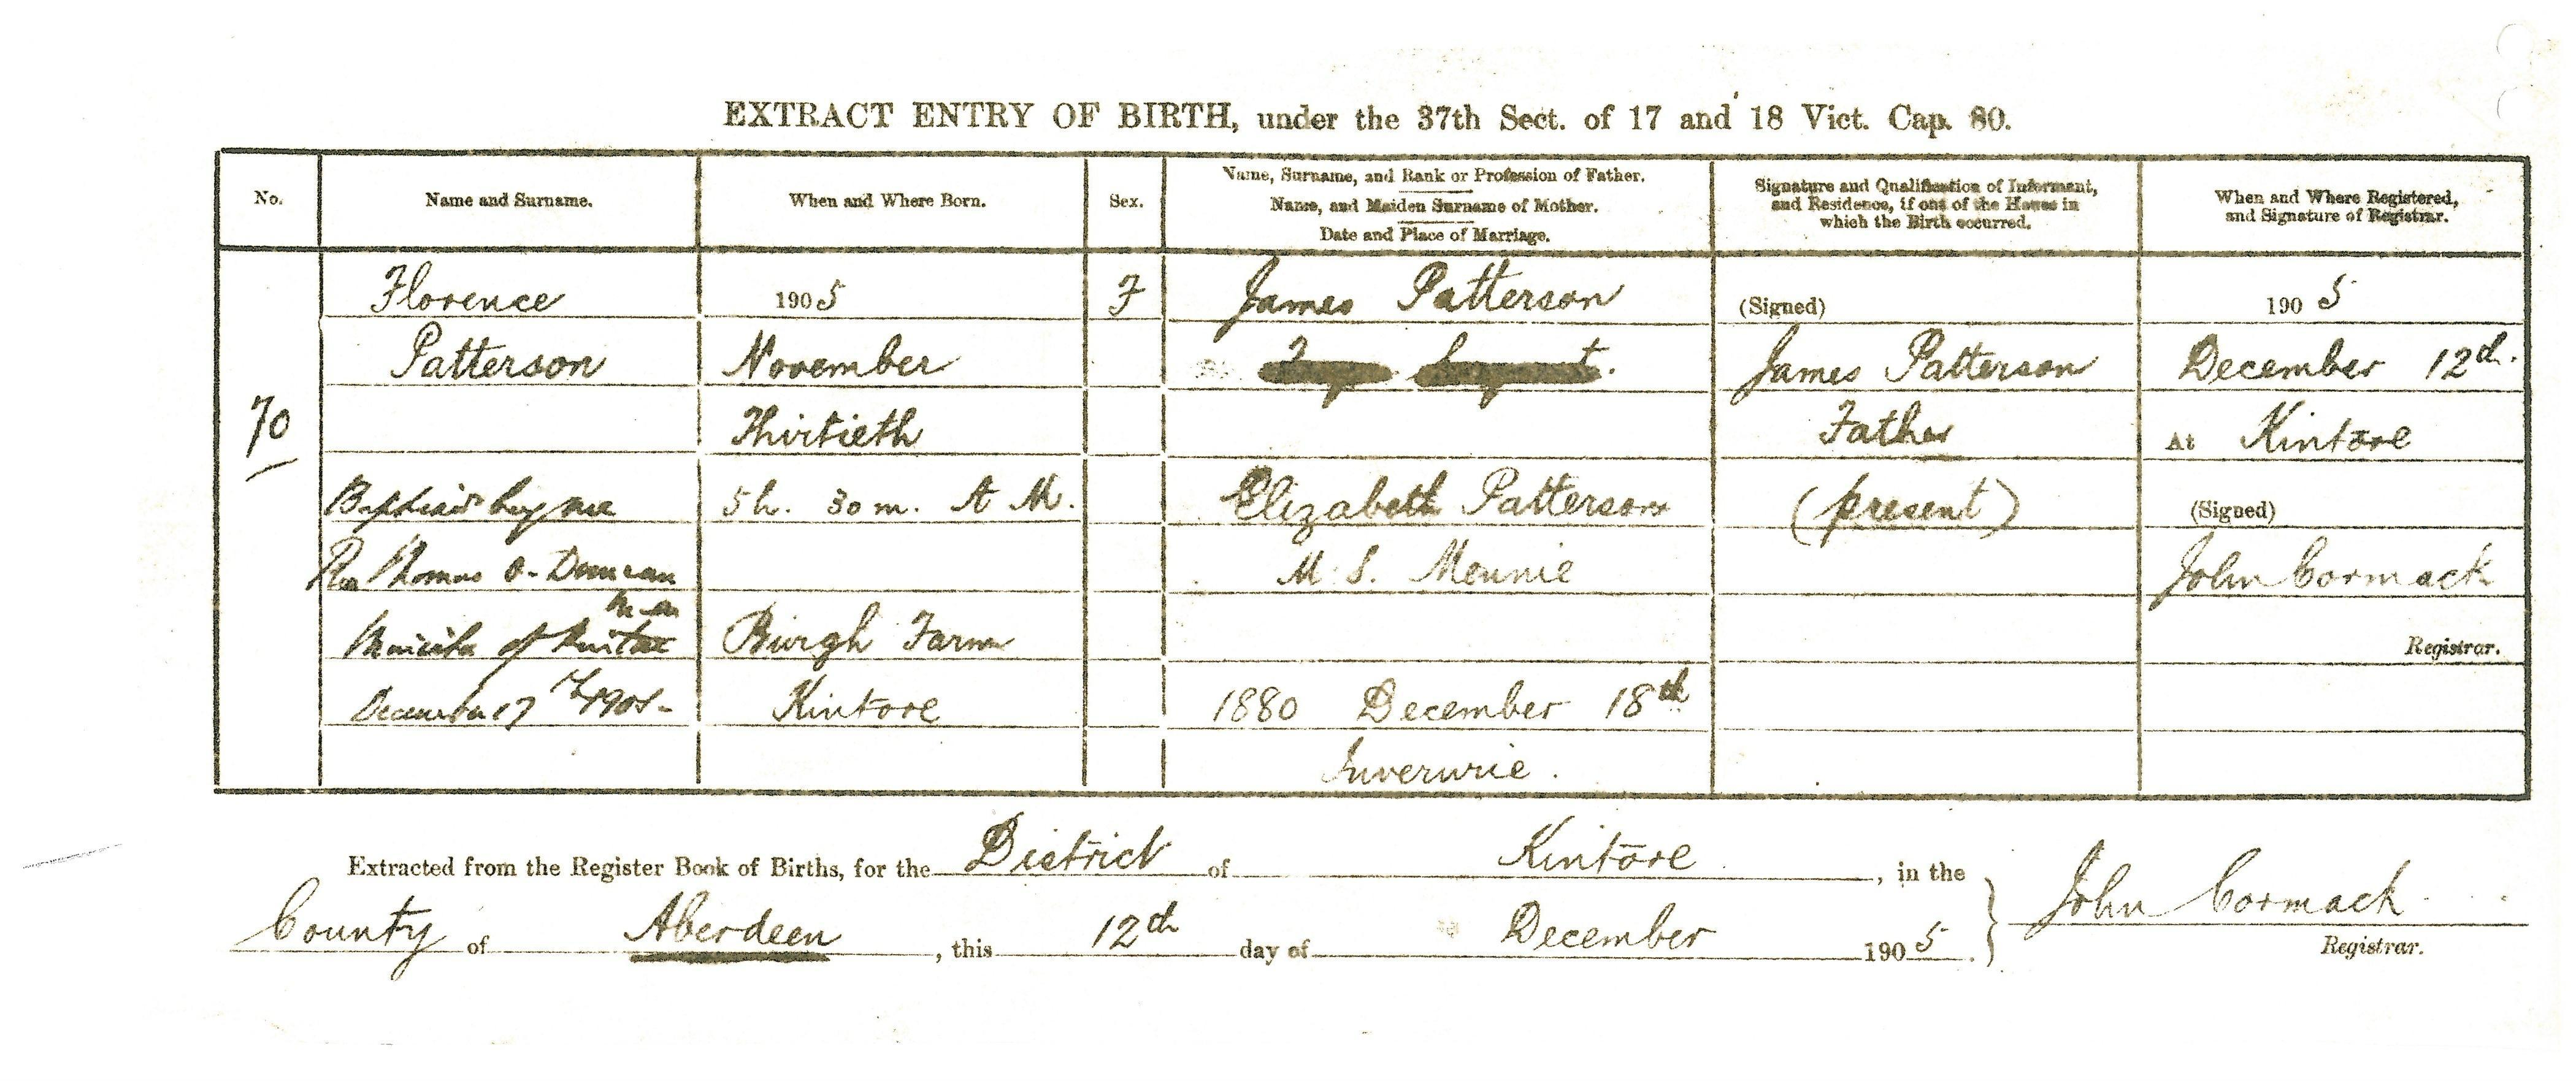 EXTRACT ENTRY OF BIRTH, under the 37th Sect. of 17 and 18 Vict. Cap. 80.
No.
Name and Surname.
When and Where Born.
Sex.
Name, Surname, and Rank or Profession of Father.
Name, and Maiden Surname of Mother.
Date and Place of Marriage.
Signature and Qualification of Informant,
and Residence, if out of the House in
which the Birth occurred.
When and Where Registered,
and Signature of Registrar.
70
Florence
Patterson
Baptised by me
Rev Thomas Duncan
Minister of Kintore
December 17th 1905
1905
November
Thirtieth
5 h. 30 m. A M.
Burgh Farm
Kintore
F
James Patterson
Elizabeth Patterson
M. S. Mennie
1880 December 18th
Inverurie.
(Signed)
James Patterson
Father
(present)
1905
December 12th.
At Kintore
(Signed)
John Cormack
Registrar.
Extracted from the Register Book of Births, for the District of Kintore, in the
County of Aberdeen, this 12th day of December 1905.
John Cormack
Registrar.